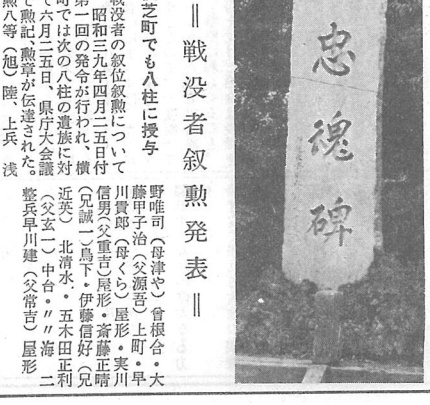 忠魂碑
＝戦没者叙勲発表＝
芝町でも八柱に授与
戦没者の叙位叙勲について
昭和三九年四月二五日付
第一回の発令が行われ、横
町では次の八柱の遺族に対
て六月二五日、県庁大会議
で勲記、勲章が伝達された。
勲八等（旭）陸、上兵　浅
野唯司（母津や）曾根合・大
藤甲子治（父源吾）上町・早
川貫郎（母くら）屋形・実川
信男（父重吉）屋形・斎藤正晴
（兄誠一）鳥下・伊藤信好（兄
近英）北清水・五木田正利
（父玄一）中台・〃〃海　二
整兵早川建（父常吉）屋形